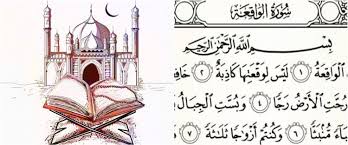 سُورَةُ الوَاقِعَة
بِسْمِ اللَّهِ الرَّحْمَٰنِ الرَّحِيمِ
الْوَاقِعَةُ ١ لَيْسَ لِوَقْعَتِهَا كَاذِبَةٌ ٢
رُجَّتِ الْأَرْضُ رَجًّا ٤ وَبُسَّتِ الْجِبَالُ
مُّنۢبَثًّا ٦ وَكُنتُمْ أَزْوَٰجًا ثَلَٰثَةً ٧